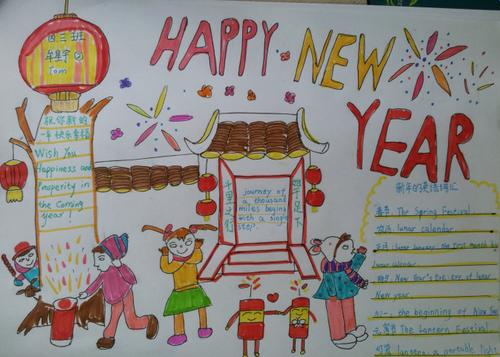 HAPPY NEW
YEAR
四三班
牟星宇
Tom
祝你新的
一年快乐幸福
Wish You
Happiness and
Properity in
the Coming
year!
千里之行
journey of
a thousand
miles begins
with a single
step.
始于足下
新年的英语词汇
春节 The Spring Festival
农历 lunar calendar
正月 lunar January, the first month in
lunar calendar
除夕 New Year's Eve, eve of lunar
New year
初一 the beginning of New
元宵节 The Lantern Festival